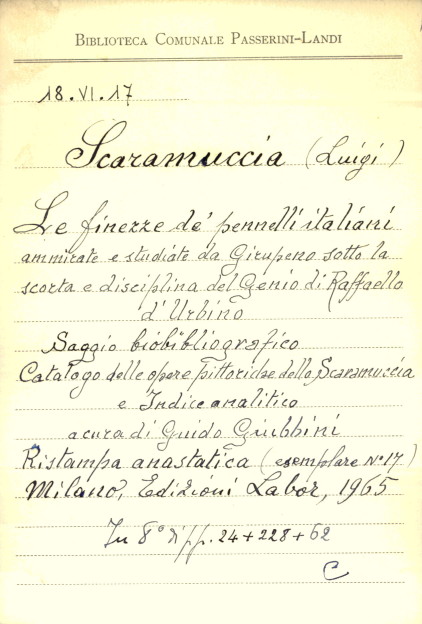 BIBLIOTECA COMUNALE PASSERINI-LANDI
18.VI.17
Scaramuccia (Luigi)
Le finezze de' pennelli italiani
ammirate e studiate da Girupeno sotto la
scorta e disciplina del Genio di Raffaello
d'Urbino
Saggio biobibliografico
Catalogo delle opere pittoriche dello Scaramuccia
e Indice analitico
a cura di Guido Giubbini
Ristampa anastatica (esemplare N° 17)
Milano, Edizioni Labor, 1965
In 8° di pp. 24+228+62
C